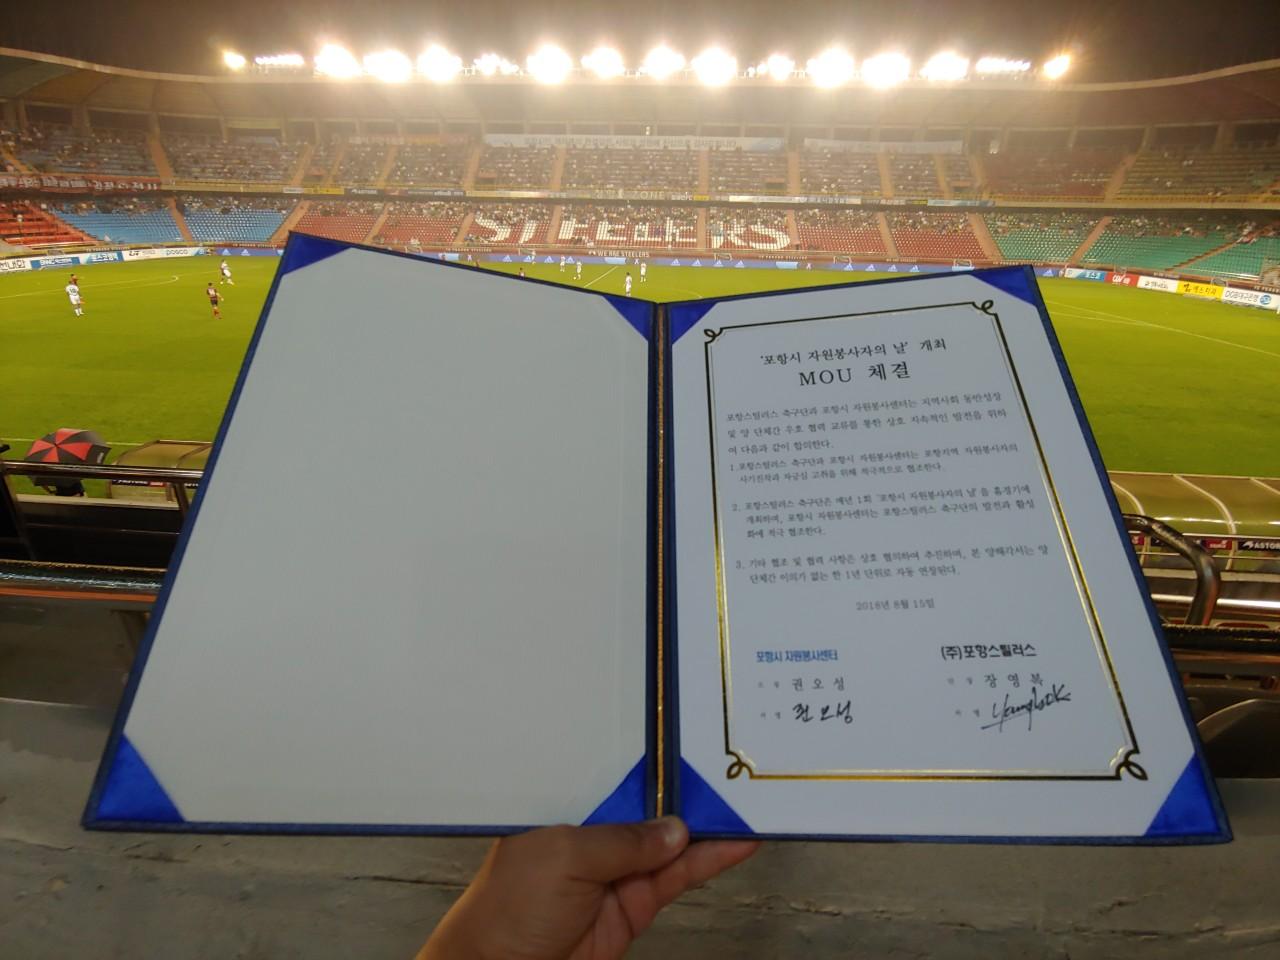 STEELERS
WE ARE STEELERS
'포항시 자원봉사자의 날' 개최
MOU 체결
포항스틸러스 축구단과 포항시 자원봉사센터는 지역사회 동반성장
및 양 단체간 우호 협력 교류를 통한 상호 지속적인 발전을 위하
여 다음과 같이 합의한다.
1.포항스틸러스 축구단과 포항시 자원봉사센터는 포항지역 자원봉사자의
사기진작과 자긍심 고취를 위해 적극적으로 협조한다.
2. 포항스틸러스 축구단은 매년 1회 '포항시 자원봉사자의 날'을 홈경기에
개최하며, 포항시 자원봉사센터는 포항스틸러스 축구단의 발전과 활성
화에 적극 협조한다.
3. 기타 협조 및 협력 사항은 상호 협의하여 추진하며, 본 양해각서는 양
단체간 이의가 없는 한 1년 단위로 자동 연장된다.
2018년 8월 15일
포항시 자원봉사센터
(주)포항스틸러스
소 장 권 오 성
단 장 장 영 복
서 명 권오성
서 명 Youngbok
DGB대구은행